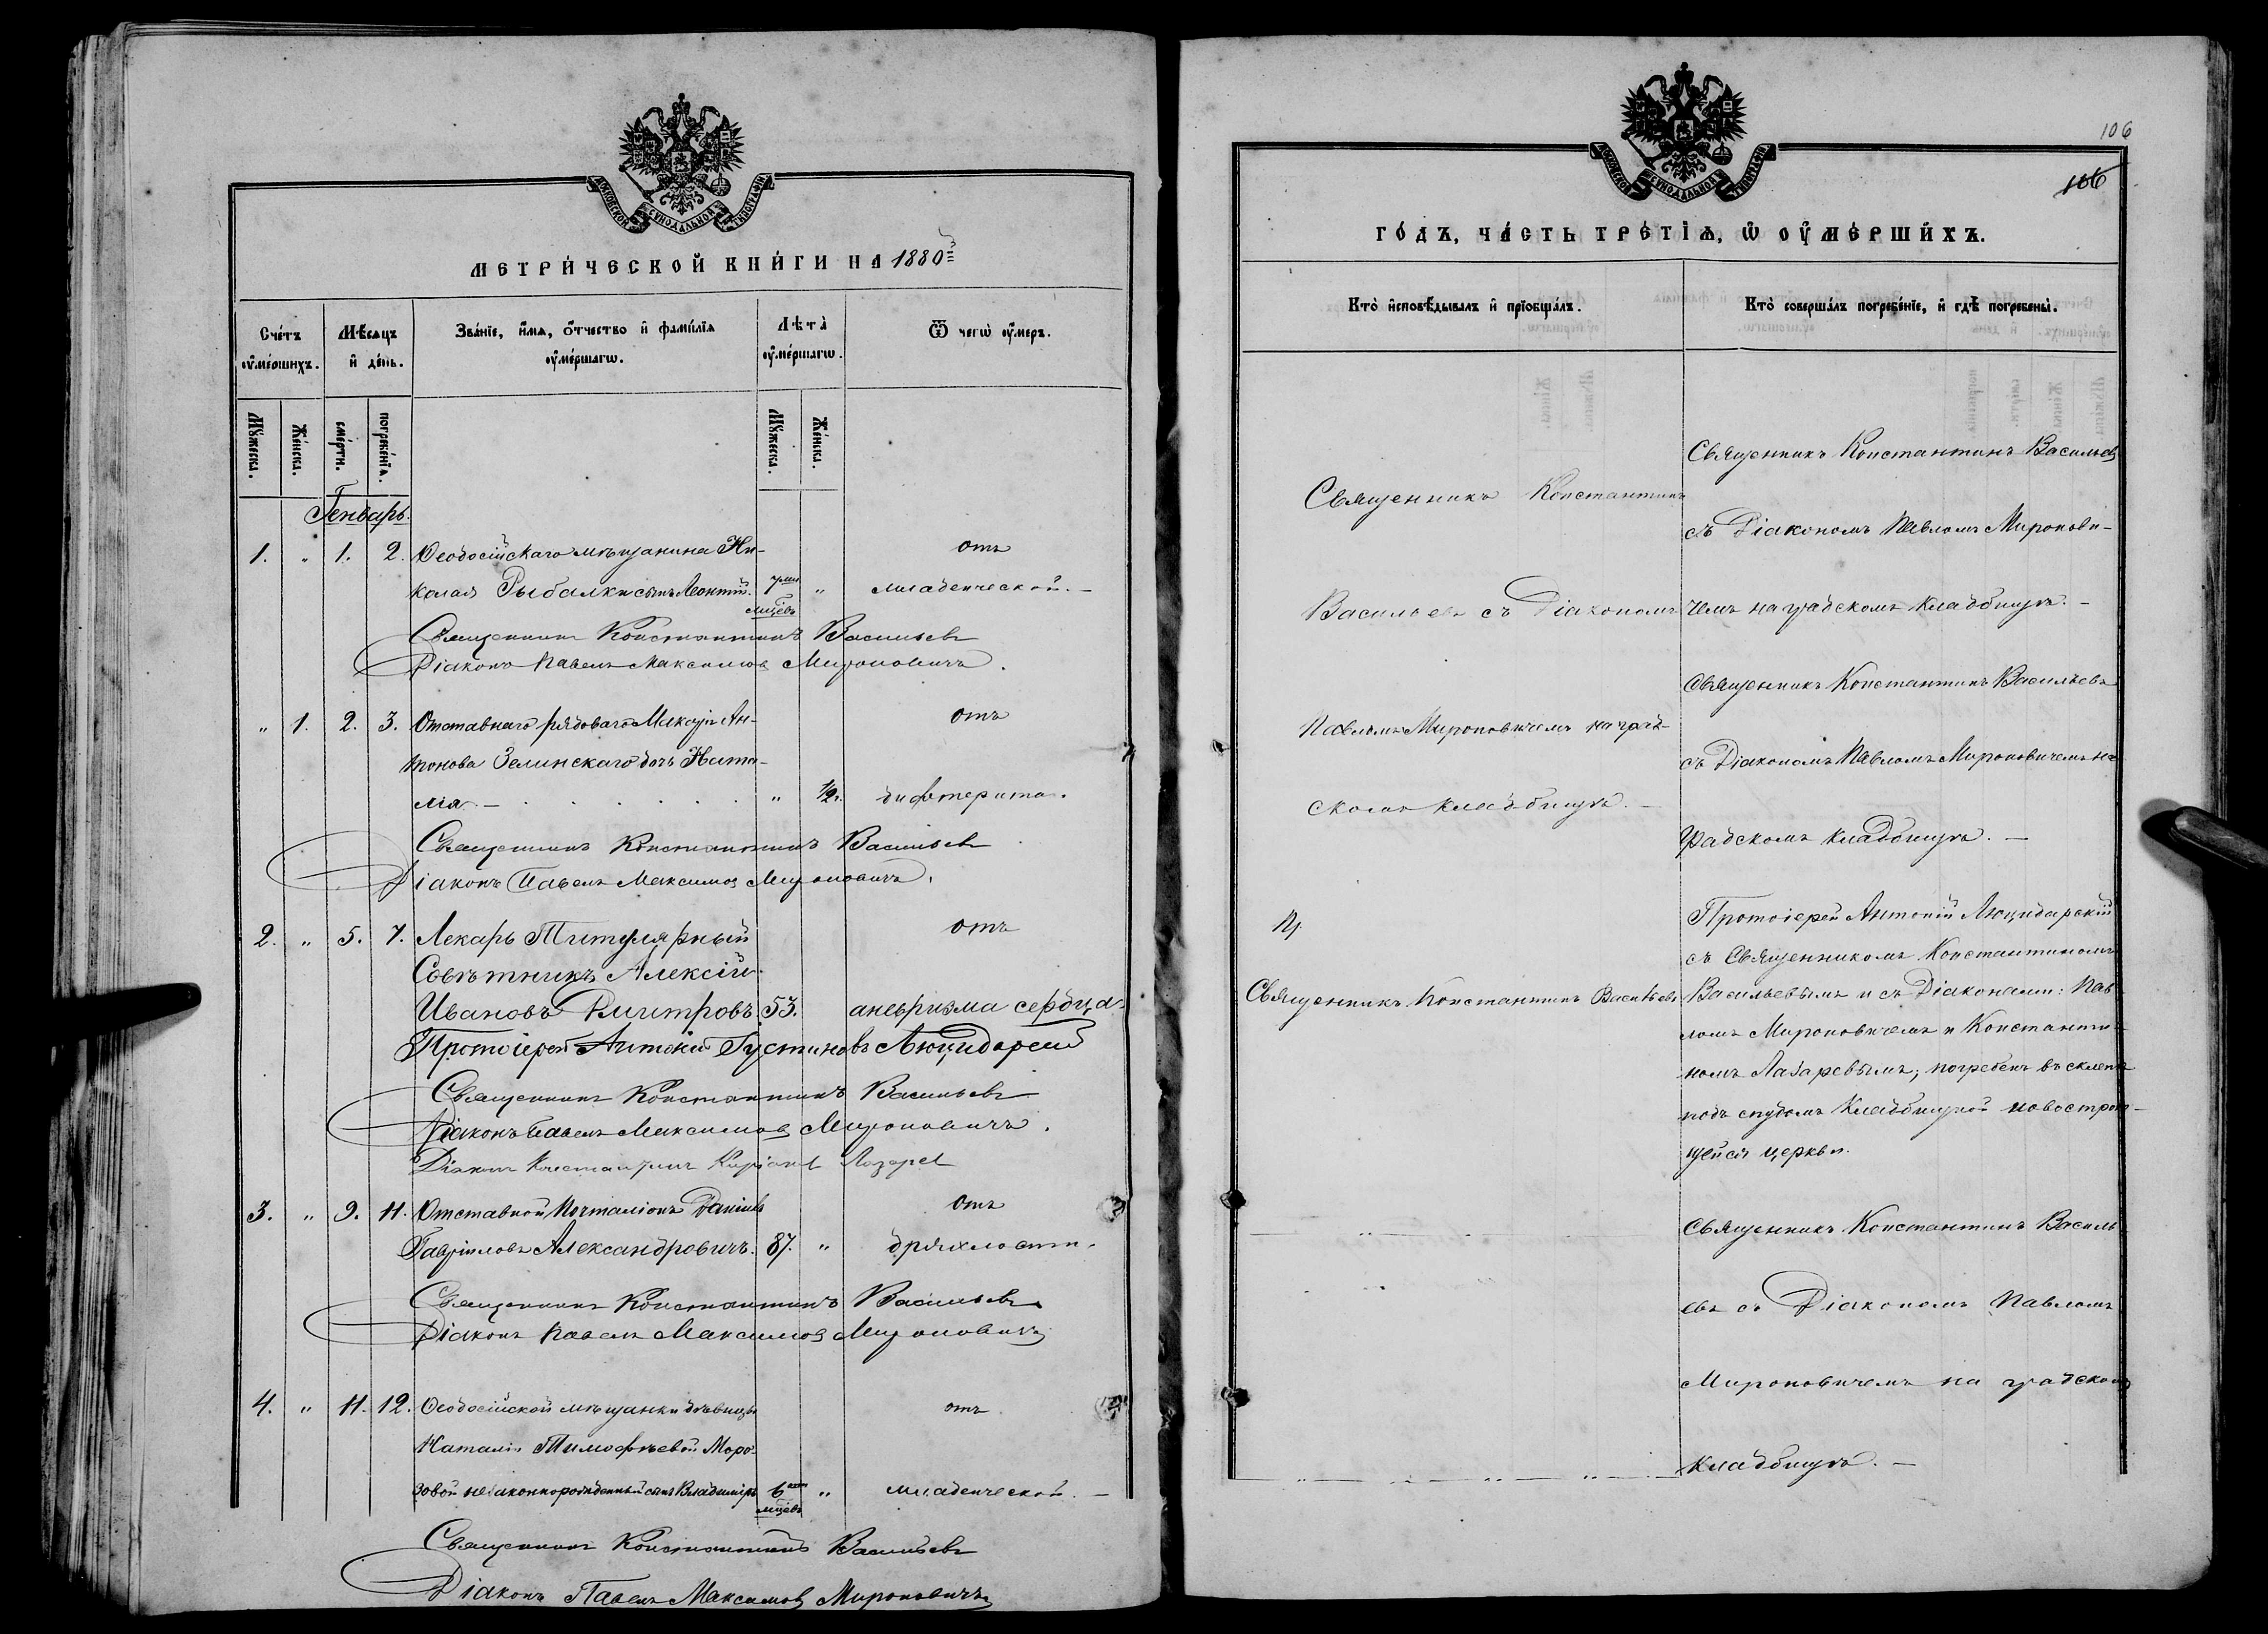 МОСКОВСКОЙ СѴНОДАЛЬНОЙ ТИПОГРАФІИ
МЕТРИ́ЧЕСКОЙ КНИ́ГИ НА 1880й
Сче́тъ ᲂу҆ме́ршихъ.
Мѣ́сяцъ и҆ де́нь.
Зва́нїе, и҆́мѧ, ѻ҆́тчество и҆ фами́лїѧ ᲂу҆ме́ршагѡ.
Лѣ́та ᲂу҆ме́ршагѡ.
Ѿ чегѡ̀ ᲂу҆́меръ.
Мꙋ́жеска.
Же́нска.
сме́рти.
погребе́нїѧ.
Мꙋ́жеска.
Же́нска.
Генварь.
1. „ 1. 2. Ѳеодосійскаго мѣщанина Ни- отъ
колая Рыбалки сынъ Леонтій. 7ми мцѣвъ „ младенческой. —
Священникъ Константинъ Васильевъ
Діаконъ Павелъ Максимовъ Мироновичъ.
„ 1. 2. 3. Отставнаго рядоваго Макара Ан- отъ
тонова Зелинскаго дочь Ната-
лія. — „ ½г. дифтерита.
Священникъ Константинъ Васильевъ
Діаконъ Павелъ Максимовъ Мироновичъ.
2. „ 5. 7. Лекарь Титулярный отъ
Совѣтникъ Алексій
Ивановъ 53. аневризма сердца.
Протоіерей Антоній Густиновъ Люцидарскій
Священникъ Константинъ Васильевъ
Діаконъ Павелъ Максимовъ Мироновичъ.
Діаконъ Константинъ Лазаревъ
3. „ 9. 11. Отставной Почталіонъ Даніилъ отъ
Гавріиловъ Александровичъ. 87. „ дряхлости.
Священникъ Константинъ Васильевъ
Діаконъ Павелъ Максимовъ Мироновичъ
4. „ 11. 12. Ѳеодосійской мѣщанки дѣвицы отъ
Наталіи Тимофѣевой Моро-
зовой незаконнорожденный сынъ Владиміръ 6ти мцѣвъ „ младенческой. —
Священникъ Константинъ Васильевъ
Діаконъ Павелъ Максимовъ Мироновичъ
106
106
МОСКОВСКОЙ СѴНОДАЛЬНОЙ ТИПОГРАФІИ
ГО́ДЪ, ЧА́СТЬ ТРЕ́ТІѦ, Ѡ҆ ОУ҆МЕ́РШИХЪ.
Кто̀ и҆сповѣ́дывалъ и҆ прїѡбща́лъ.
Кто̀ соверша́лъ погребе́нїе, и҆ гдѣ̀ погребены̀.
Священникъ Константинъ
Васильевъ съ Діакономъ
Павломъ Мироновичемъ на град-
скомъ кладбищѣ. —
Пр
Священникъ Константинъ Васильевъ
Священникъ Константинъ Васильевъ
съ Діакономъ Павломъ Миронови-
чемъ на градскомъ кладбищѣ. —
Священникъ Константинъ Васильевъ
съ Діакономъ Павломъ Мироновичемъ на
градскомъ кладбищѣ. —
Протоіерей Антоній Люцидарскій
съ Священникомъ Константиномъ
Васильевымъ и съ Діаконами: Пав-
ломъ Мироновичемъ и Константи-
номъ Лазаревымъ; погребенъ въ склепѣ
подъ спудомъ Кладбищной новострою-
щейся церкви.
Священникъ Константинъ Василь-
евъ съ Діакономъ Павломъ
Мироновичемъ на градскомъ
кладбищѣ. —